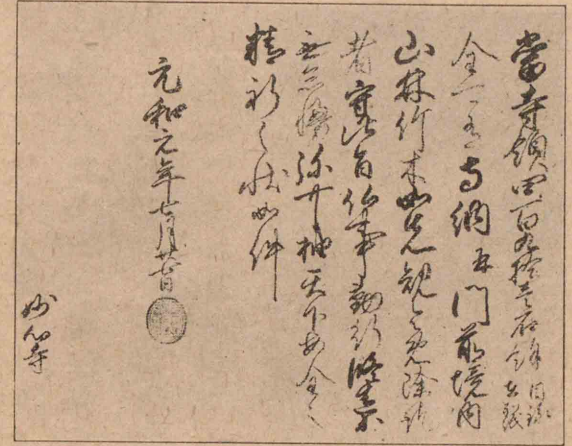 當寺領四百九拾壱石餘目録在別紙
全可有寺納并門前境内
山林竹木如先規令免除訖
者守此旨仏事勤行修造等
無怠慢弥可抽天下安全之
精祈之状如件
元和元年七月廿日
妙心寺